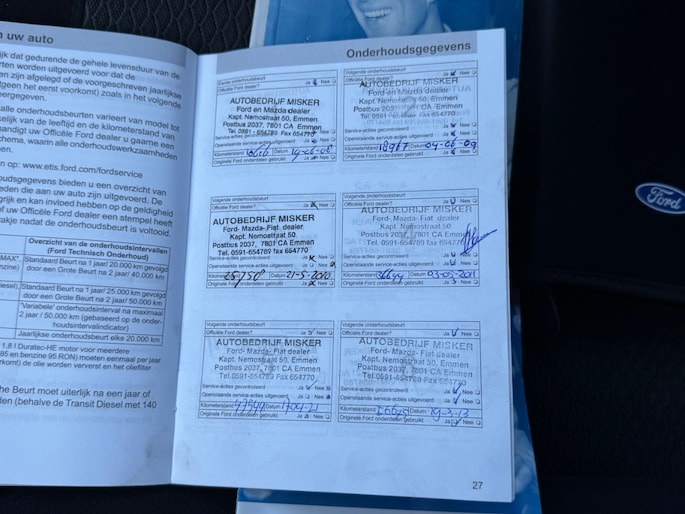 n uw auto
jk dat gedurende de gehele levensduur van de
rten worden uitgevoerd voor dat de
en zijn afgelegd of de voorgeschreven jaarlijkse
tgeen het eerst voorkomt) zoals in het volgende
eergegeven.
alle onderhoudsbeurten varieert van model tot
kelijk van de leeftijd en de kilometerstand van
andigt uw Officiële Ford dealer u gaarne een
chema, waarin alle onderhoudswerkzaamheden
een.
n op: www.etis.ford.com/fordservice
oudsgegevens bieden u een overzicht van
eden die aan uw auto zijn uitgevoerd. De
grijk en kan invloed hebben op de geldigheid
of uw Officiële Ford dealer een stempel heeft
vakje nadat de onderhoudsbeurt is voltooid.
Overzicht van de onderhoudsintervallen
(Ford Technisch Onderhoud)
MAX*,
enzine)
Standaard Beurt na 1 jaar/ 20.000 km gevolgd
door een Grote Beurt na 2 jaar/ 40.000 km
iesel)
Standaard Beurt na 1 jaar/ 25.000 km gevolgd
door een Grote Beurt na 2 jaar/ 50.000 km
'Variabele' onderhoudsinterval na maximaal
2 jaar / 50.000 km (gebaseerd op de onder-
houdsintervalindicator)
Jaarlijkse onderhoudsbeurt elke 20.000 km
1,8 l Duratec-HE motor voor meerdere
85 en benzine 95 RON) moeten eenmaal per jaar
orkomt) de olie worden ververst en het oliefilter
he Beurt moet uiterlijk na een jaar of
den (behalve de Transit Diesel met 140
Onderhoudsgegevens
Eerste onderhoudsbeurt
Officiële Ford dealer? Ja Nee
AUTOBEDRIJF MISKER
Ford en Mazda dealer
Kapt. Nemostraat 50, Emmen
Postbus 2037, 7801 CA Emmen
Service-acties gecontroleerd Ja Nee
Openstaande service-acties uitgevoerd Ja Nee
Kilometerstand Datum
Originele Ford onderdelen gebruikt Ja Nee
Volgende onderhoudsbeurt
Officiële Ford dealer? Ja Nee
AUTOBEDRIJF MISKER
Ford en Mazda dealer
Kapt. Nemostraat 50, Emmen
Postbus 2037, 7801 CA Emmen
Service-acties gecontroleerd Ja Nee
Openstaande service-acties uitgevoerd Ja Nee
Kilometerstand 18967 Datum 04-06-09
Originele Ford onderdelen gebruikt Ja Nee
Volgende onderhoudsbeurt
Officiële Ford dealer? Ja Nee
AUTOBEDRIJF MISKER
Ford-Mazda-Fiat dealer
Kapt. Nemostraat 50, Emmen
Postbus 2037, 7801 CA Emmen
Tel. 0591-654769 Fax 654770
Service-acties gecontroleerd Ja Nee
Openstaande service-acties uitgevoerd Ja Nee
Kilometerstand 25758 Datum 21-5-2010
Originele Ford onderdelen gebruikt Ja Nee
Volgende onderhoudsbeurt
Officiële Ford dealer? Ja Nee
AUTOBEDRIJF MISKER
Ford-Mazda-Fiat dealer
Kapt. Nemostraat 50
Postbus 2037, 7801 CA Emmen
Tel. 0591-654769 Fax 654770
Service-acties gecontroleerd Ja Nee
Openstaande service-acties uitgevoerd Ja Nee
Kilometerstand Datum 03-05-2011
Originele Ford onderdelen gebruikt Ja Nee
Volgende onderhoudsbeurt
Officiële Ford dealer? Ja Nee
AUTOBEDRIJF MISKER
Ford-Mazda-Fiat dealer
Kapt. Nemostraat 50, Emmen
Postbus 2037, 7801 CA Emmen
Tel. 0591-654769 Fax 654770
Service-acties gecontroleerd Ja Nee
Openstaande service-acties uitgevoerd Ja Nee
Kilometerstand Datum
Originele Ford onderdelen gebruikt Ja Nee
Volgende onderhoudsbeurt
Officiële Ford dealer? Ja Nee
AUTOBEDRIJF MISKER
Ford-Mazda-Fiat dealer
Kapt. Nemostraat 50, Emmen
Postbus 2037, 7801 CA Emmen
Tel.0591-654769 Fax 654770
Service-acties gecontroleerd Ja Nee
Openstaande service-acties uitgevoerd Ja Nee
Kilometerstand Datum 19-3-13
Originele Ford onderdelen gebruikt Ja Nee
27
Ford